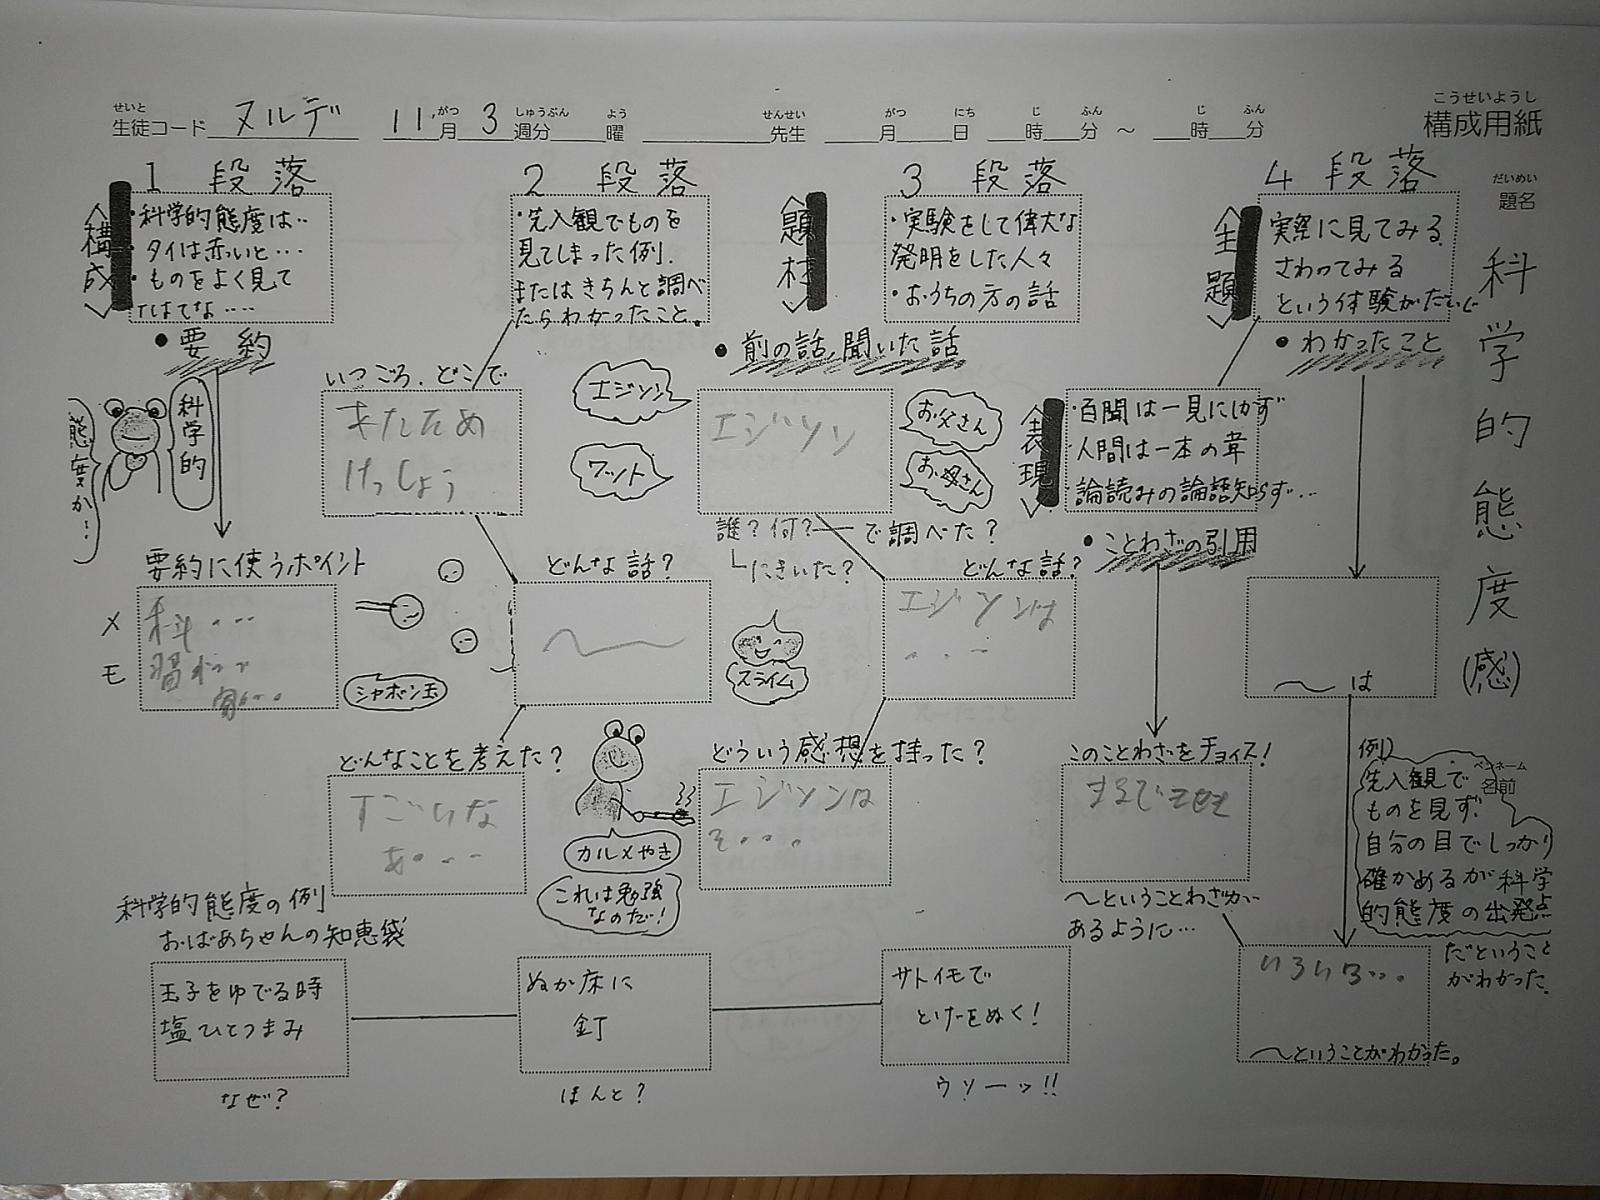 こうせいようし
構成用紙
せいと
生徒コード ヌルデ 11月 3週分 曜 先生 月 日 時 分 ～ 時 分
がつ しゅうぶん よう せんせい がつ にち じ ふん じ ふん
だいめい
題名
科学的態度(感)
ペンネーム
名前
1 段落
<構成>
・科学的態度は‥
・タイは赤いと…
・ものをよく見て
ではてな‥‥
・要約
科学的
態度か…
要約に使うポイント
メモ
科…
習…
シャボン玉
2 段落
・先入観でものを
見てしまった例.
またはきちんと調べ
たらわかったこと。
いつごろ、どこで
きたため
けっしょう
どんな話?
どんなことを考えた?
すごいな
あ…
<題材>
3 段落
・実験をして偉大な
発明をした人々
・おうちの方の話
・前の話、聞いた話
エジソン
ワット
エジソン
お父さん
お母さん
誰?何?──で調べた?
にきいた?
どんな話?
エジソンは
…
スライム
どういう感想を持った?
エジソンは
そ…
カルメやき
これは勉強
なのだ!
<主題>
4 段落
実際に見てみる。
さわってみる
という体験がだいじ
・わかったこと
<表現>
・百聞は一見にしかず
・人間は一本の葦
・論語読みの論語知らず…
・ことわざの引用
このことわざをチョイス!
～ということわざが
あるように…
～は
例)
先入観で
ものを見ず、
自分の目でしっかり
確かめるが科学
的態度の出発点
だということ
がわかった。
いろいろ…
～ということがわかった。
科学的態度の例
おばあちゃんの知恵袋
玉子をゆでる時
塩ひとつまみ
なぜ?
ぬか床に
釘
ほんと?
サトイモで
とげをぬく!
ウソーッ!!